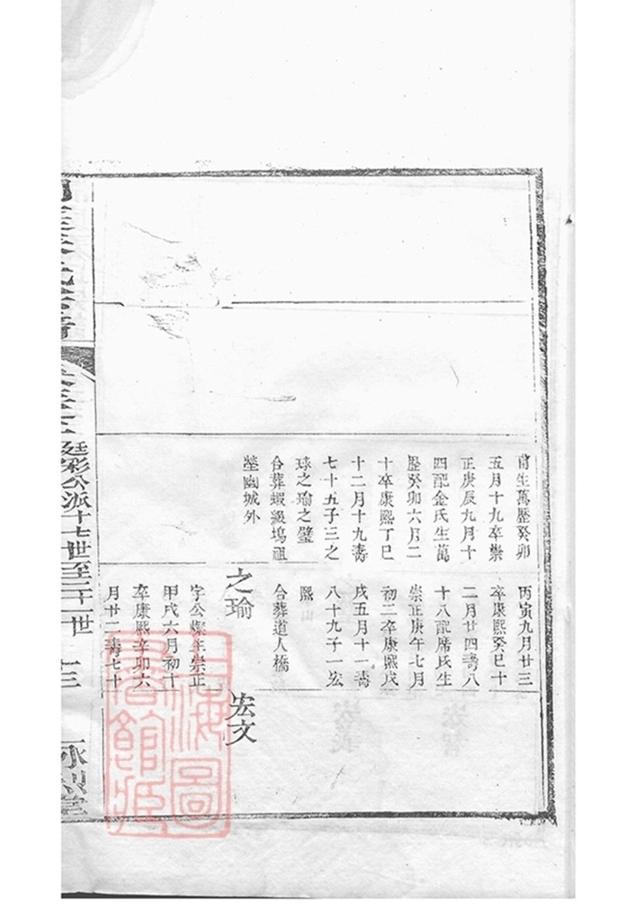 甫生萬歷癸卯
五月十九卒崇
正庚辰九月十
四配金氏生萬
歷癸卯六月二
十卒康熙丁巳
十二月十九壽
七十五子三之
球之瑜之璧
合葬蝦級塢祖
塋幽城外
丙寅九月廿三
卒康熙癸巳十
二月廿四壽八
十八配席氏生
崇正庚午七月
初二卒康熙戊
戌五月十一壽
八十九子一宏
熙
合葬道人橋
之瑜
字公燦生崇正
甲戌六月初十
卒康熙辛卯六
月廿二壽七十
宏文
廷彩公派十七世至二十一世
十三
上海圖書館藏